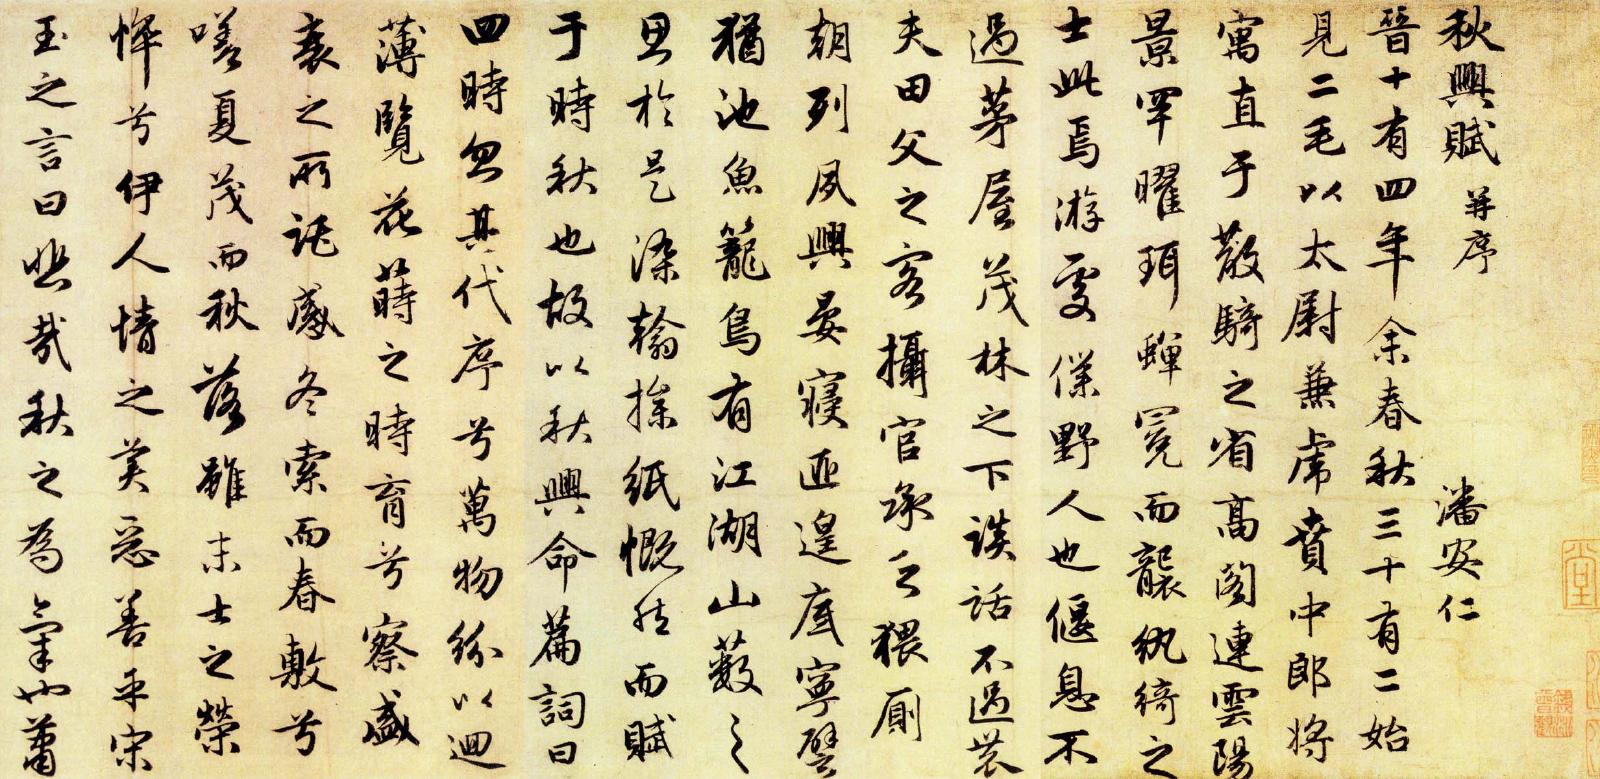 秋興賦 并序 潘安仁
晉十有四年余春秋三十有二始
見二毛以太尉兼虎賁中郎將
寓直于散騎之省高閣連雲陽
景罕曜珥蟬冕而襲紈綺之
士此焉游處僕野人也偃息不
過茅屋茂林之下談話不過農
夫田父之客攝官承乏猥厠
朝列夙興晏寢匪遑底寧譬
猶池魚籠鳥有江湖山藪之
思於是染翰操紙慨然而賦
于時秋也故以秋興命篇詞曰
四時忽其代序兮萬物紛以迴
薄覽花蒔之時育兮察盛
衰之所託感冬索而春敷兮
嗟夏茂而秋落雖末士之榮
悴兮伊人情之美惡善乎宋
玉之言曰悲哉秋之為氣也蕭